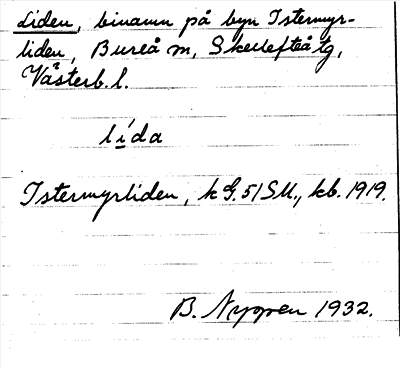 Liden, binamn på byn Istermyr-
liden, Bureå sn, Skellefteå tg,
Västerb. l.
lída
Istermyrliden, k G. 51 SU., kb. 1919.
B. Nygren 1932.